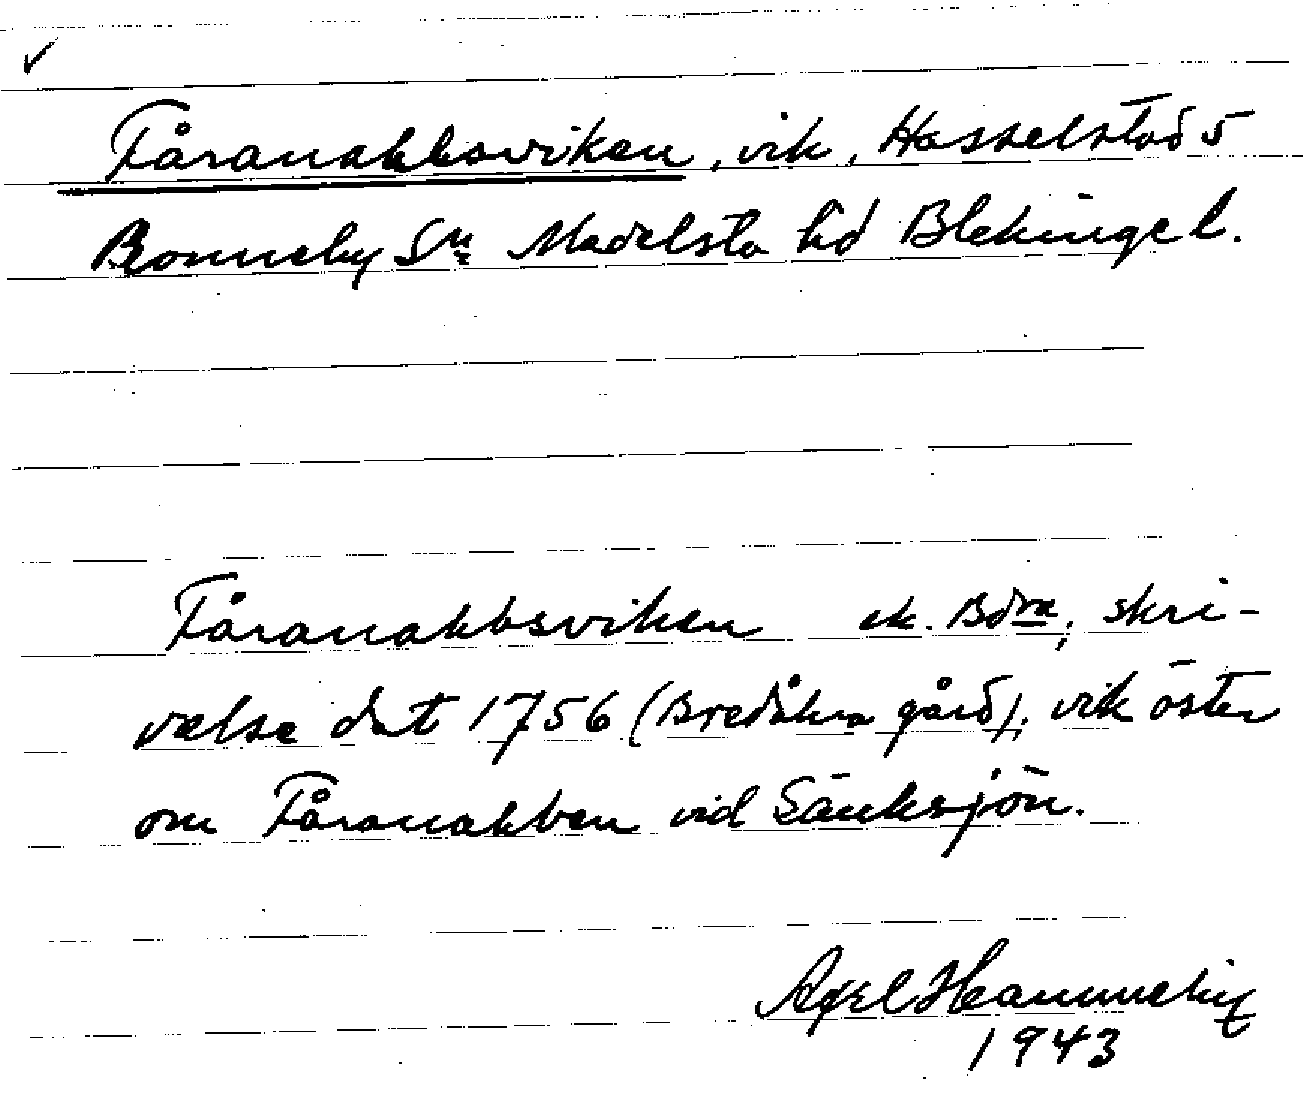 Fåranabbsviken, vik, Hasselstad 5
Ronneby Sn Medelsta hd Blekinge l.
Fåranabbsviken ek. Bdra; skri-
velse dat 1756 (Bredåkra gård); vik öster
om Fåranabben vid Sänksjön.
Axel Hammeby
1943